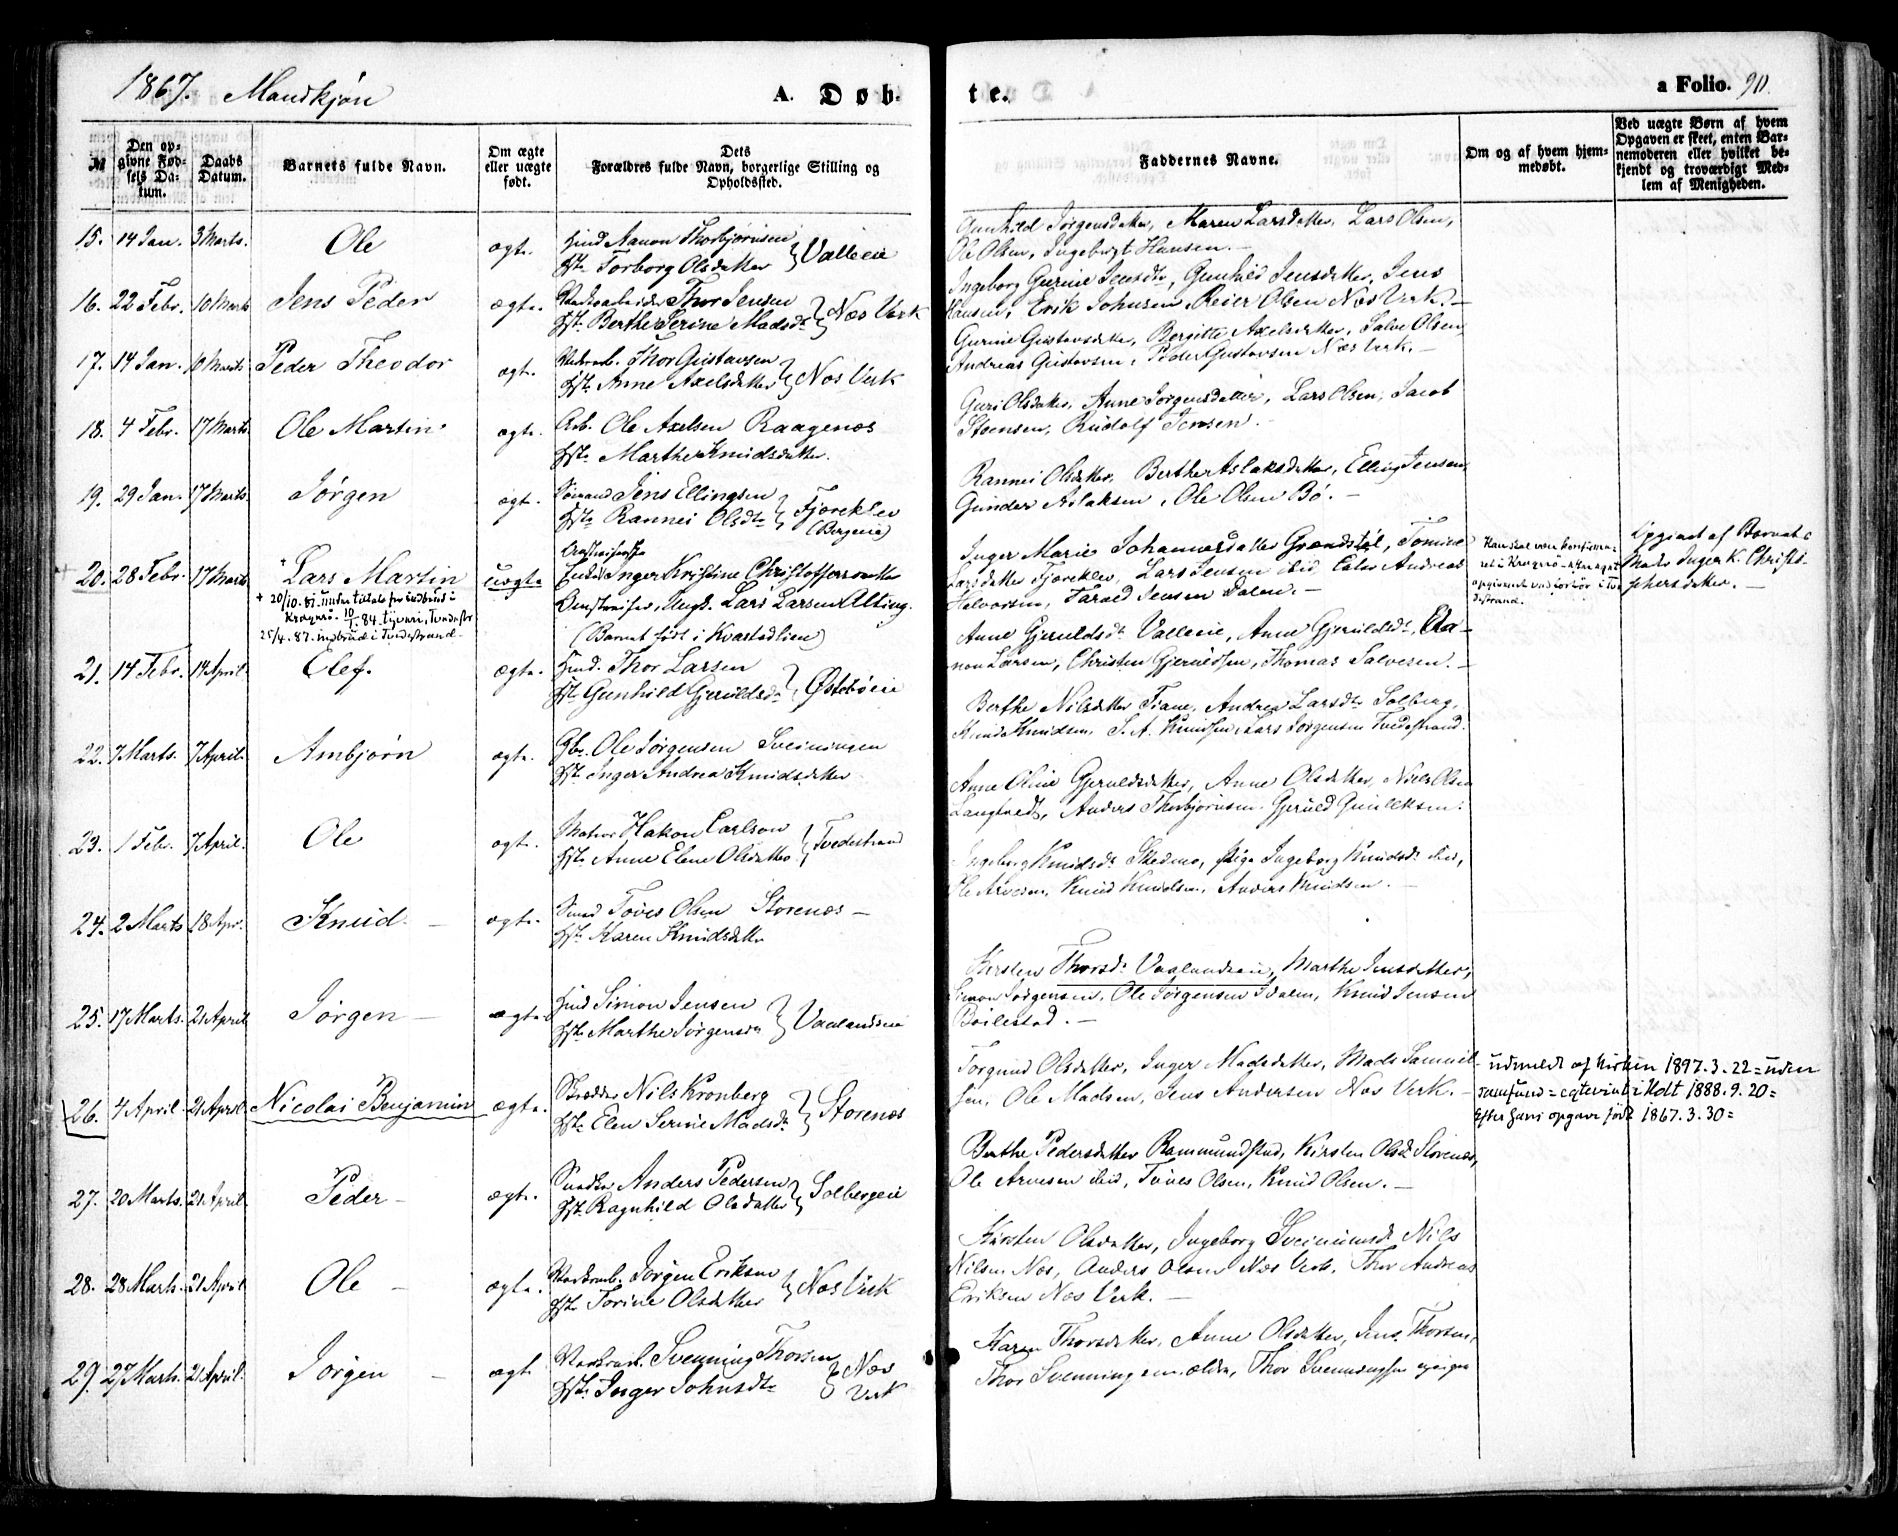 1867. Mandkjøn
A. Døb-
te.
a Folio. 90.
№
Den op-
givne Fød-
sels Da-
tum.
Daabs
Datum.
Barnets fulde Navn.
Om ægte
eller uægte
født.
Dets
Forældres fulde Navn, borgerlige Stilling og
Opholdssted.
Faddernes Navne.
Om og af hvem hjem-
medøbt.
Ved uægte Børn af hvem
Opgaven er skeet, enten Bar-
nemoderen eller hvilket be-
kjendt og troværdigt Med-
lem af Menigheden.
15. 14 Jan. 3 Marts. Ole ægte. Thorbjørnsen
Torborg Olsdatter } Valleeie
Gunhild Jørgensdatter, Maren Larsdatter, Lars Olsen,
Ole Olsen, Ingebregt Hansen. —
16. 22 Febr. 10 Marts Jens Peder ægte. Thor Jensen
Berthe Serine Madsdt } Næs Verk
Ingeborg Gurine Jensdt, Gunhild Jensdatter, Jens
Hansen, Erik Johnsen, Reier Olsen Næs Verk. —
17. 14 Jan. 10 Marts Peder Theodor ægte. Thor Gustavsen
Anne Axelsdatter } Næs Verk
Gurine Gustavsdatter, Bergitte Axelsdatter, Salve Olsen,
Andreas Gustavsen, Peder Gustavsen Næs Verk. —
18. 4 Febr. 17 Marts Ole Martin ægte. Arb. Ole Axelsen Raagenæs
Marthe Knudsdatter.
Guri Olsdatter, Anne Jørgensdatter, Lars Olsen, Jacob
Stensen, Rudolf Jensen. —
19. 29 Jan. 17 Marts. Jørgen ægte. Sømand Jens Ellingsen
Rannei Olsdt } Fjæreklev
(Bergeeie)
Rannei Olsdatter, Berthe Aslaksdatter, Elling Jensen,
Gunder Aslaksen, Ole Olsen Bø. —
20. 28 Febr. 17 Marts Lars Martin uægte Inger Kristine Christoffersdatter
Ungk. Lars Larsen Alting.
(Barnet født i Kvastadlien)
+ 20/10-81 under tiltale for indbrud i
Kragerø. 10/1. 84. tyveri, Tvedestr.
25/4. 87. indbrud i Tvedestrand.
Inger Marie Johannesdatter Grændstøl, Tomine
Larsdatter Fjæreklev, Lars Jensen ibid, Andreas
Halvorsen, Tarald Jensen Dalen. —
Han skal være konfirme-
ret i Kragerø
opgivet ved forhør i Tve-
destrand.
Opgivet af Barnets
Moder Inger K. Christo-
phersdatter. —
21. 14 Febr. 14 April. Elef. ægte. Thor Larsen
Gunhild Gjeruldsdt } Østebøeie
Anne Gjeruldsdt Valleeie, Anne Gjeruldsdt,
Larsen, Christen Gjeruldsen, Thomas Salvesen. —
22. 7 Marts. 7 April. Ambjørn ægte. Gbr. Ole Jørgensen Sveinungen
Inger Andrea Knudsdatter
Berthe Nilsdatter Tiane, Andrea Larsdt Solberg,
Knud Knudsen, S. A. Knudsen, Lars Jørgensen Tvedestrand.
23. 1 Febr. 7 April. Ole ægte. Matros Hakon Carlson
Anne Elene Olsdatter } Tvedestrand
Anne Oline Gjeruldsdatter, Anne Olsdatter, Niels Olsen
Langtvedt, Anders Thorbjørnsen, Gjeruld Gunleksen.
24. 2 Marts 18 Apr. Knud. — ægte. Toves Olsen Storenæs —
Karen Knudsdatter
Ingeborg Knudsdt Skedmo, pige Ingeborg Knudsdt ibid,
Ole Arvesen, Knud Knudsen, Anders Knudsen. —
25. 17 Marts. 21 April Jørgen — ægte. Simon Jensen
Marthe Jørgensdt } Vaalandseie
Kirsten Thorsdt Vaalandseie, Marthe Jensdatter,
Simon Jørgensen, Ole Jørgensen Dalen, Knud Jensen
Bøilestad. —
26. 4 April. 21 April Nicolai Benjamin ægte. Skrædder Nils Kronberg
Elen Serine Madsdt } Storenæs
Torgund Olsdatter, Inger Madsdatter, Mads Samuel-
sen, Ole Madsen, Jens Andersen Næs Verk. —
udmeldt af kirken 1897. 3. 22 = uden
samfund = i Holt 1888. 9. 20 =
efter hans opgave født 1867. 3. 30 =
27. 20 Marts. 21 April. Peder — ægte. Anders Pedersen
Ragnhild Olsdatter } Solbergeie
Berthe Pedersdatter Rammundstad, Kirsten Olsdt Storenæs,
Ole Arvesen ibid, Toves Olsen, Knud Olsen. —
28. 28 Marts. 21 April Ole — ægte. Verksarb. Jørgen Eriksen
Torine Olsdatter } Næs Verk
Kirsten Olsdatter, Ingeborg Nils
Nilsen Næs, Anders Olsen Næs Verk, Thor Andreas
Eriksen Næs Verk. —
29. 27 Marts. 21 April. Jørgen — ægte Verksarb. Svenning Thorsen
Inger Johnsdt } Næs
Verk
Karen Thorsdatter, Anne Olsdatter, Jens Thorsen,
Thor Svenningsen ældre, Thor Svenningsen yngre